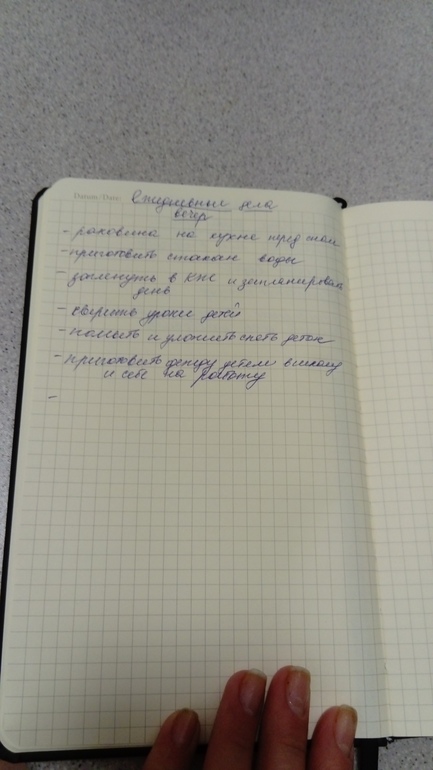 Datum/Date: Ежедневные дела
вечер
- раковина на кухне перед сном
- приготовить стакан воды
- заглянуть в КЖ и запланировать
день
- сверить уроки детей
- помыть и уложить спать деток
- приготовить одежду детям в школу
и себе на работу
-